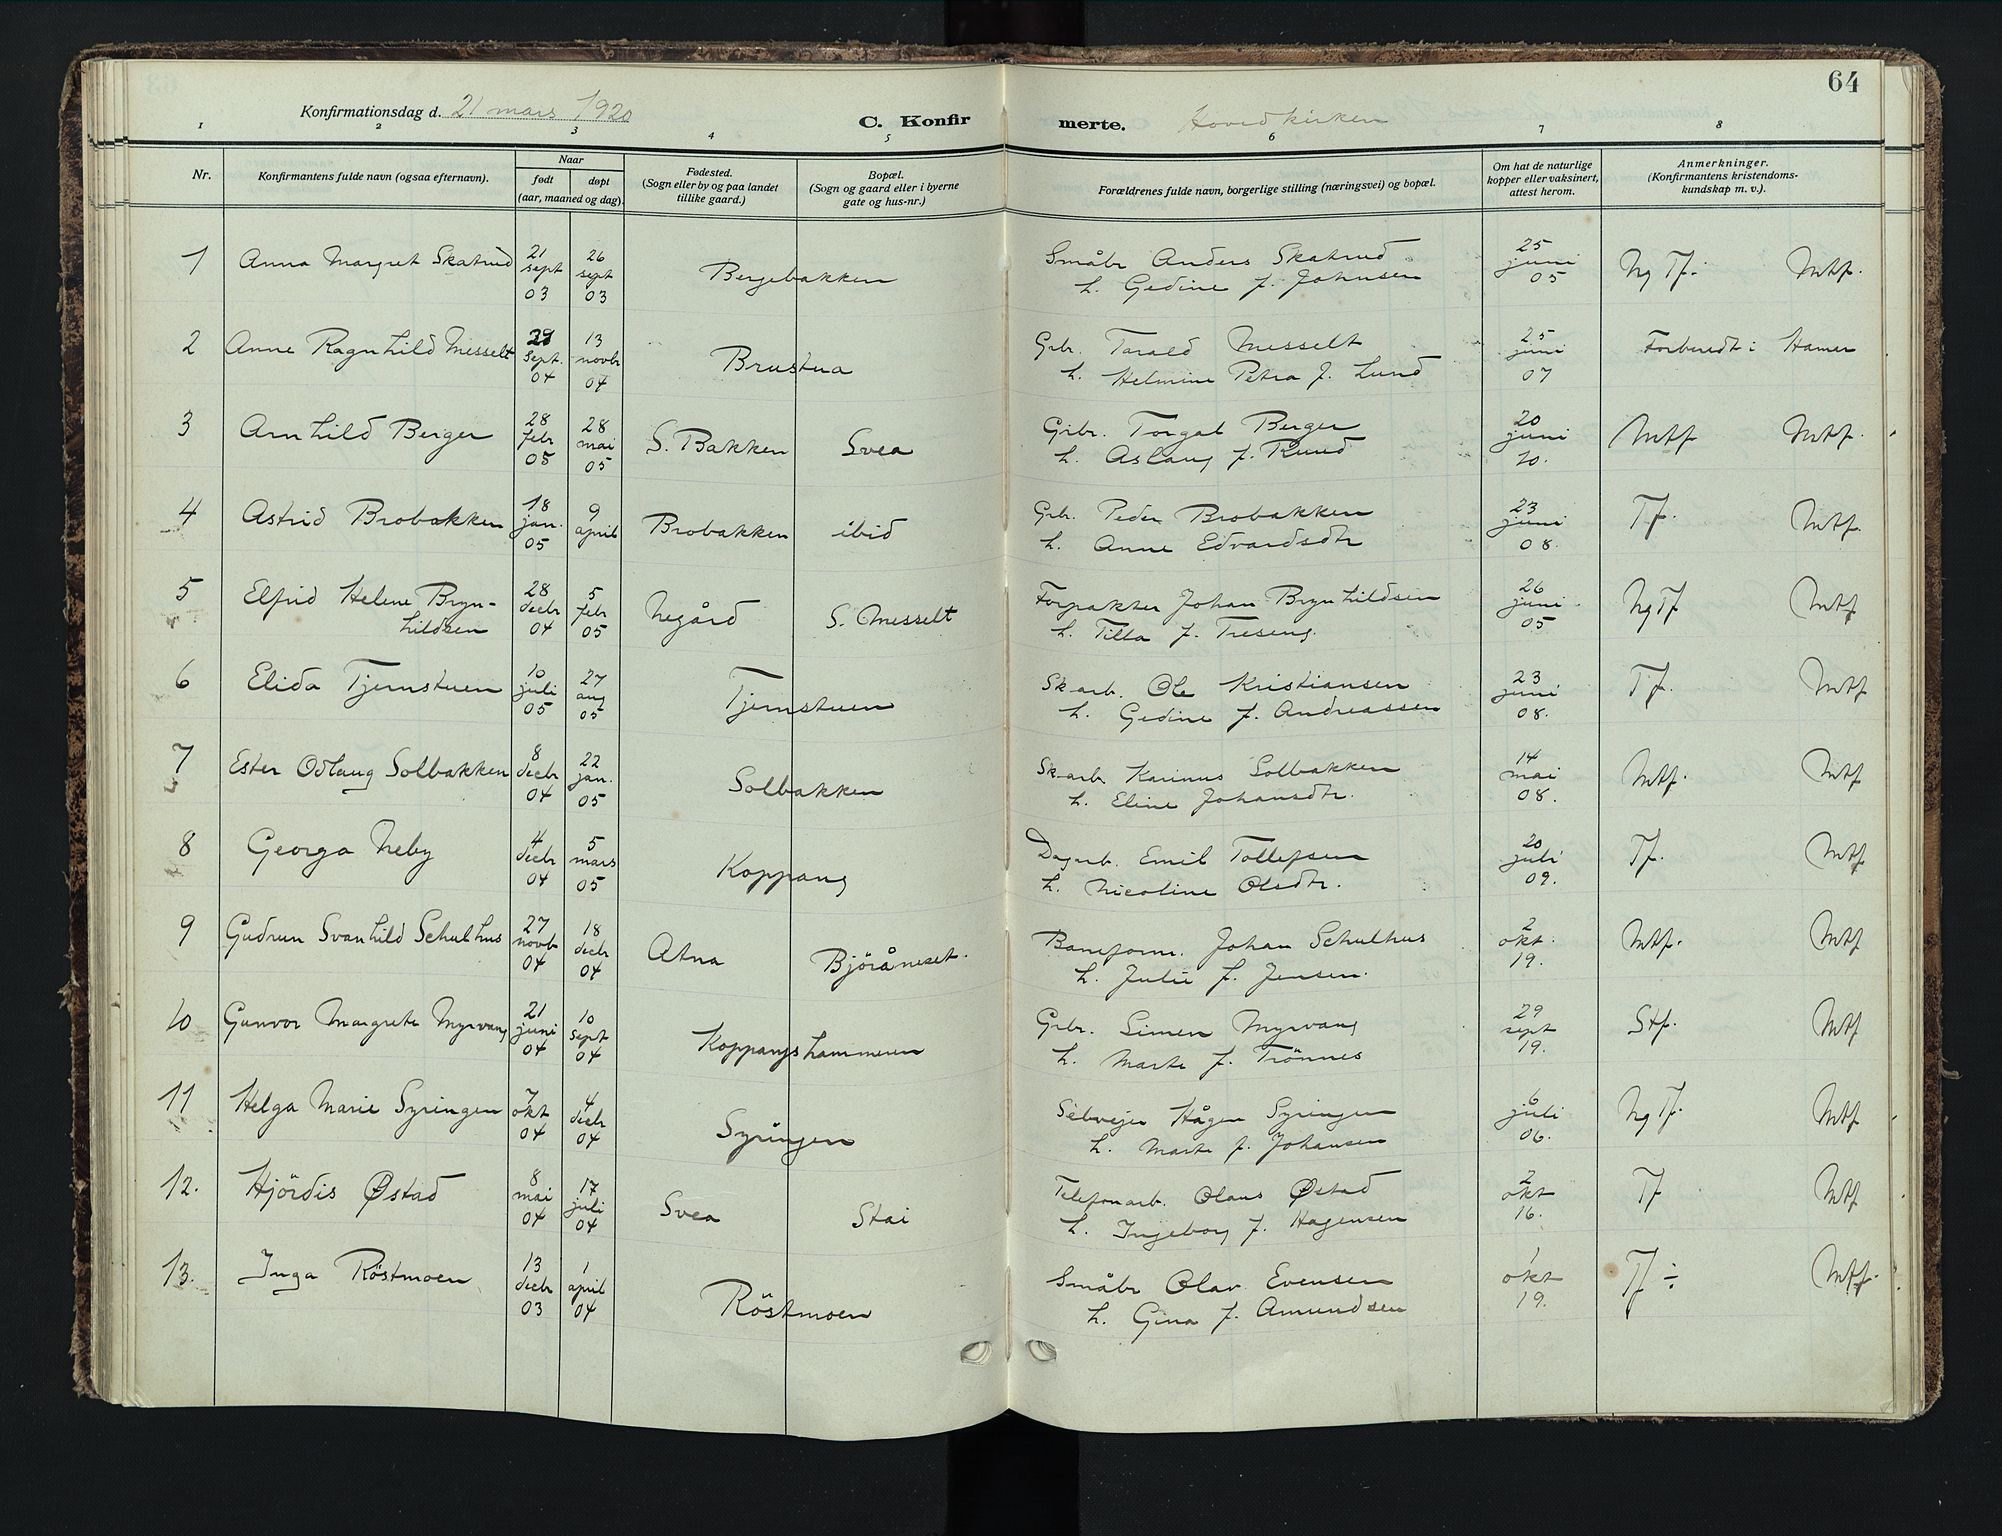 64
Konfirmationsdag d. 21 mars 1920 C. Konfirmerte. Hovedkirken
1 2 3 4 5 6 7 8
Nr. Konfirmantens fulde navn (ogsaa efternavn). Naar født døpt (aar, maaned og dag). Fødested. (Sogn eller by og paa landet tillike gaard.) Bopæl. (Sogn og gaard eller i byerne gate og hus-nr.) Forældrenes fulde navn, borgerlige stilling (næringsvei) og bopæl. Om hat de naturlige kopper eller vaksinert, attest herom. Anmerkninger. (Konfirmantens kristendoms-kundskap m. v.).
1 Anna Margret Skatrud 21 sept 03 26 sept 03 Bergebakken Småbr Anders Skatrud 25 juni 05 Ng Tf. Mtf.
h. Gedine f. Johnsen
2 Anne Ragnhild Messelt sept. 04 13 novbr 04 Brustua Grbr. Tarald Messelt 25 juni 07 Forberedt i Hamer
h. Helmine Petra f. Lund
3 Arnhild Berger 28 febr 05 28 mai 05 S. Bakken Svea Grbr. Torgal Berger 20 juni 10. Mtf Mtf.
h. Aslaug f. Rund
4 Astrid Brobakken 18 jan. 05 9 april Brobakken ibid Grbr. Peder Brobakken 23 juni 08. Tf. Mtf.
h. Anne Edvardsdtr
5 Elfrid Helene Bryn- 28 decbr 04 5 febr 05 Negård S. Messelt Forpakter Johan Brynhildsen 26 juni 05 Ng Tf Mtf
hildsen h. Tilla f. Treseng.
6 Elida Tjernstuen 10 juli 05 27 aug 05 Tjernstuen Sk-arb. Ole Kristiansen 23 juni 08. Tf. Mtf
h. Gedine f. Andreassen
7 Ester Odlaug Solbakken 8 decbr 04 22 jan. 05 Solbakken Sk-arb. Karinus Solbakken 14 mai 08. Mtf. Mtf
h. Eline Johansdtr.
8 Georga Neby 4 decbr 04 5 mars 05 Koppang Dagarb. Emil Tollefsen 20 juli 09. Tf. Mtf
h. Nicoline Olsdtr.
9 Gudrun Svanhild Schulhus 27 novb 04 18 decbr 04 Atna Björåneset. Baneform. Johan Schulhus 2 okt. 19. Mtf. Mtf
h. Julie f. Jensen.
10 Gunvor Margrete Myrvang 21 juni 04 10 sept 04 Koppangshammeren Grbr. Simen Myrvang 29 sept 19. Stf. Mtf
h. Marte f. Trönnes
11 Helga Marie Syringen 7 okt 04 4 decbr 04 Syringen Selvejer Hågen Syringen 6 juli 06. Ng Tf. Mtf
h. Marte f. Johansen
12. Hjördis Østad 8 mai 04 17 juli 04 Svea Stai Telefonarb. Olaus Østad 2 okt 16. Tf Mtf
h. Ingeborg f. Hagensen
13. Inga Röstmoen 13 decbr 03 1 april 04 Röstmoen Småbr Olav Evensen 1 okt 19. Tf ÷ Mtf.
h. Gina f. Amundsen